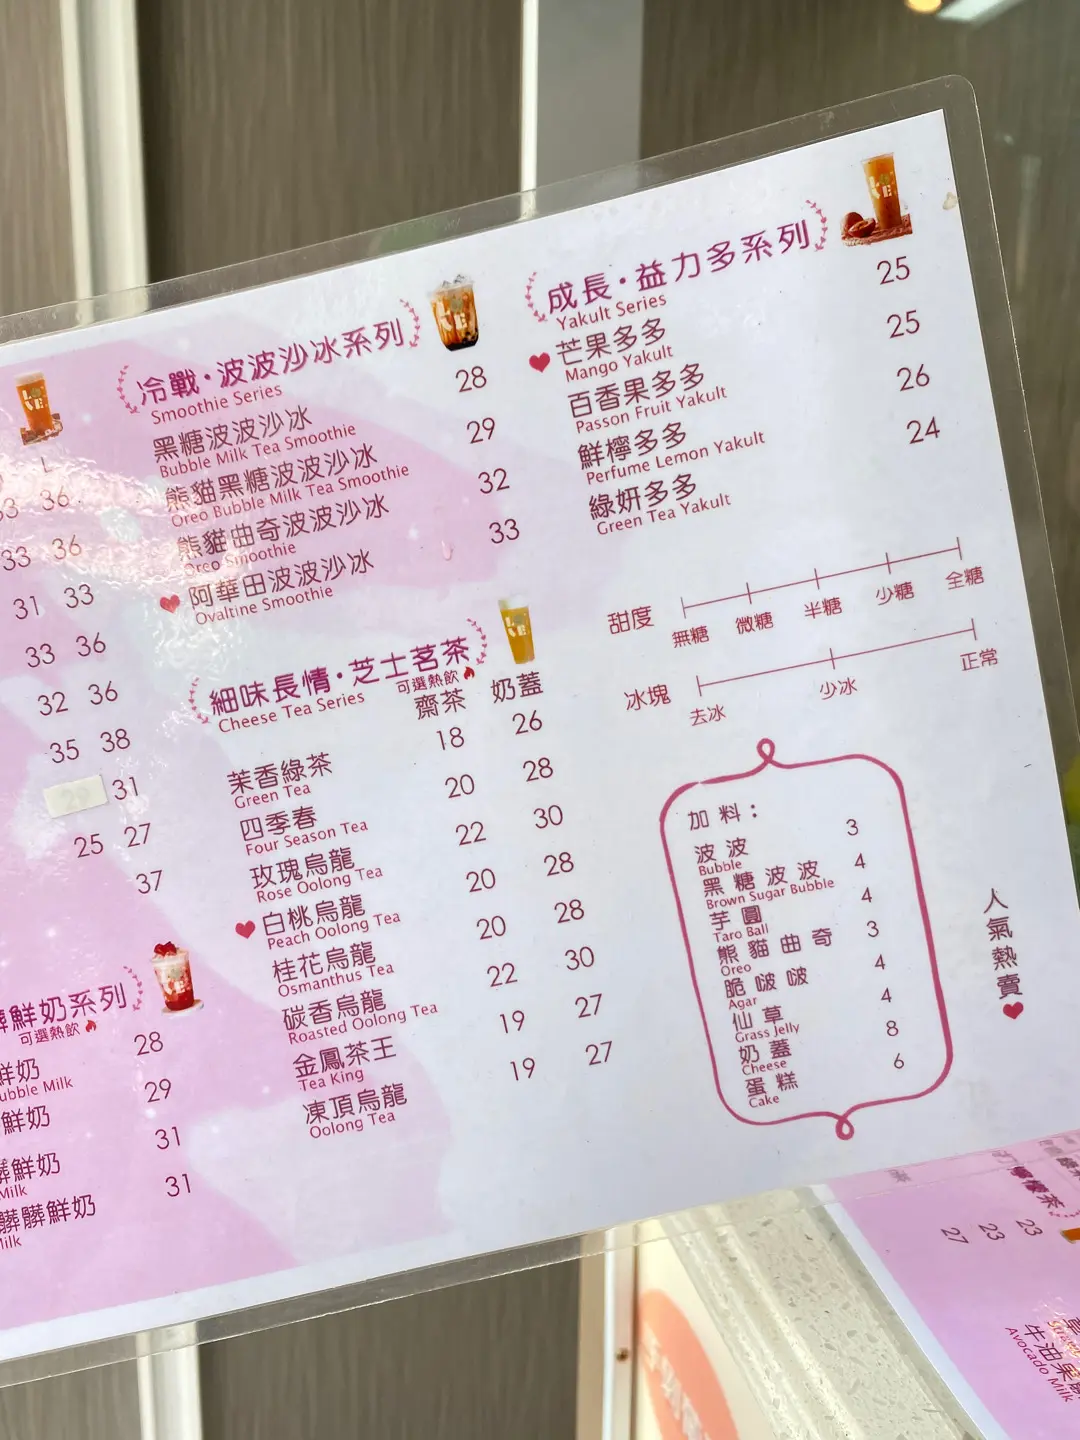 L
33 36
33 36
31 33
33 36
32 36
35 38
31
25 27
37
鮮奶系列
可選熱飲
28
鮮奶
Bubble Milk
29
鮮奶
31
髒鮮奶
Milk
31
髒髒鮮奶
Milk
冷戰·波波沙冰系列
Smoothie Series
黑糖波波沙冰 28
Bubble Milk Tea Smoothie
熊貓黑糖波波沙冰 29
Oreo Bubble Milk Tea Smoothie
熊貓曲奇波波沙冰 32
Oreo Smoothie
阿華田波波沙冰 33
Ovaltine Smoothie
細味長情·芝士茗茶
Cheese Tea Series
可選熱飲
齋茶 奶蓋
茉香綠茶 18 26
Green Tea
四季春 20 28
Four Season Tea
玫瑰烏龍 22 30
Rose Oolong Tea
白桃烏龍 20 28
Peach Oolong Tea
桂花烏龍 20 28
Osmanthus Tea
碳香烏龍 22 30
Roasted Oolong Tea
金鳳茶王 19 27
Tea King
凍頂烏龍 19 27
Oolong Tea
成長·益力多系列
Yakult Series
芒果多多 25
Mango Yakult
百香果多多 25
Passon Fruit Yakult
鮮檸多多 26
Perfume Lemon Yakult
綠妍多多 24
Green Tea Yakult
甜度 無糖 微糖 半糖 少糖 全糖
冰塊 去冰 少冰 正常
加料：
波波 3
Bubble
黑糖波波 4
Brown Sugar Bubble
芋圓 4
Taro Ball
熊貓曲奇 3
Oreo
脆啵啵 4
Agar
仙草 4
Grass Jelly
奶蓋 8
Cheese
蛋糕 6
Cake
人氣熱賣
LOVE
LOVE
LOVE
LOVE
LOVE
檸檬茶
23
23
27
牛油果
Avocado Milk